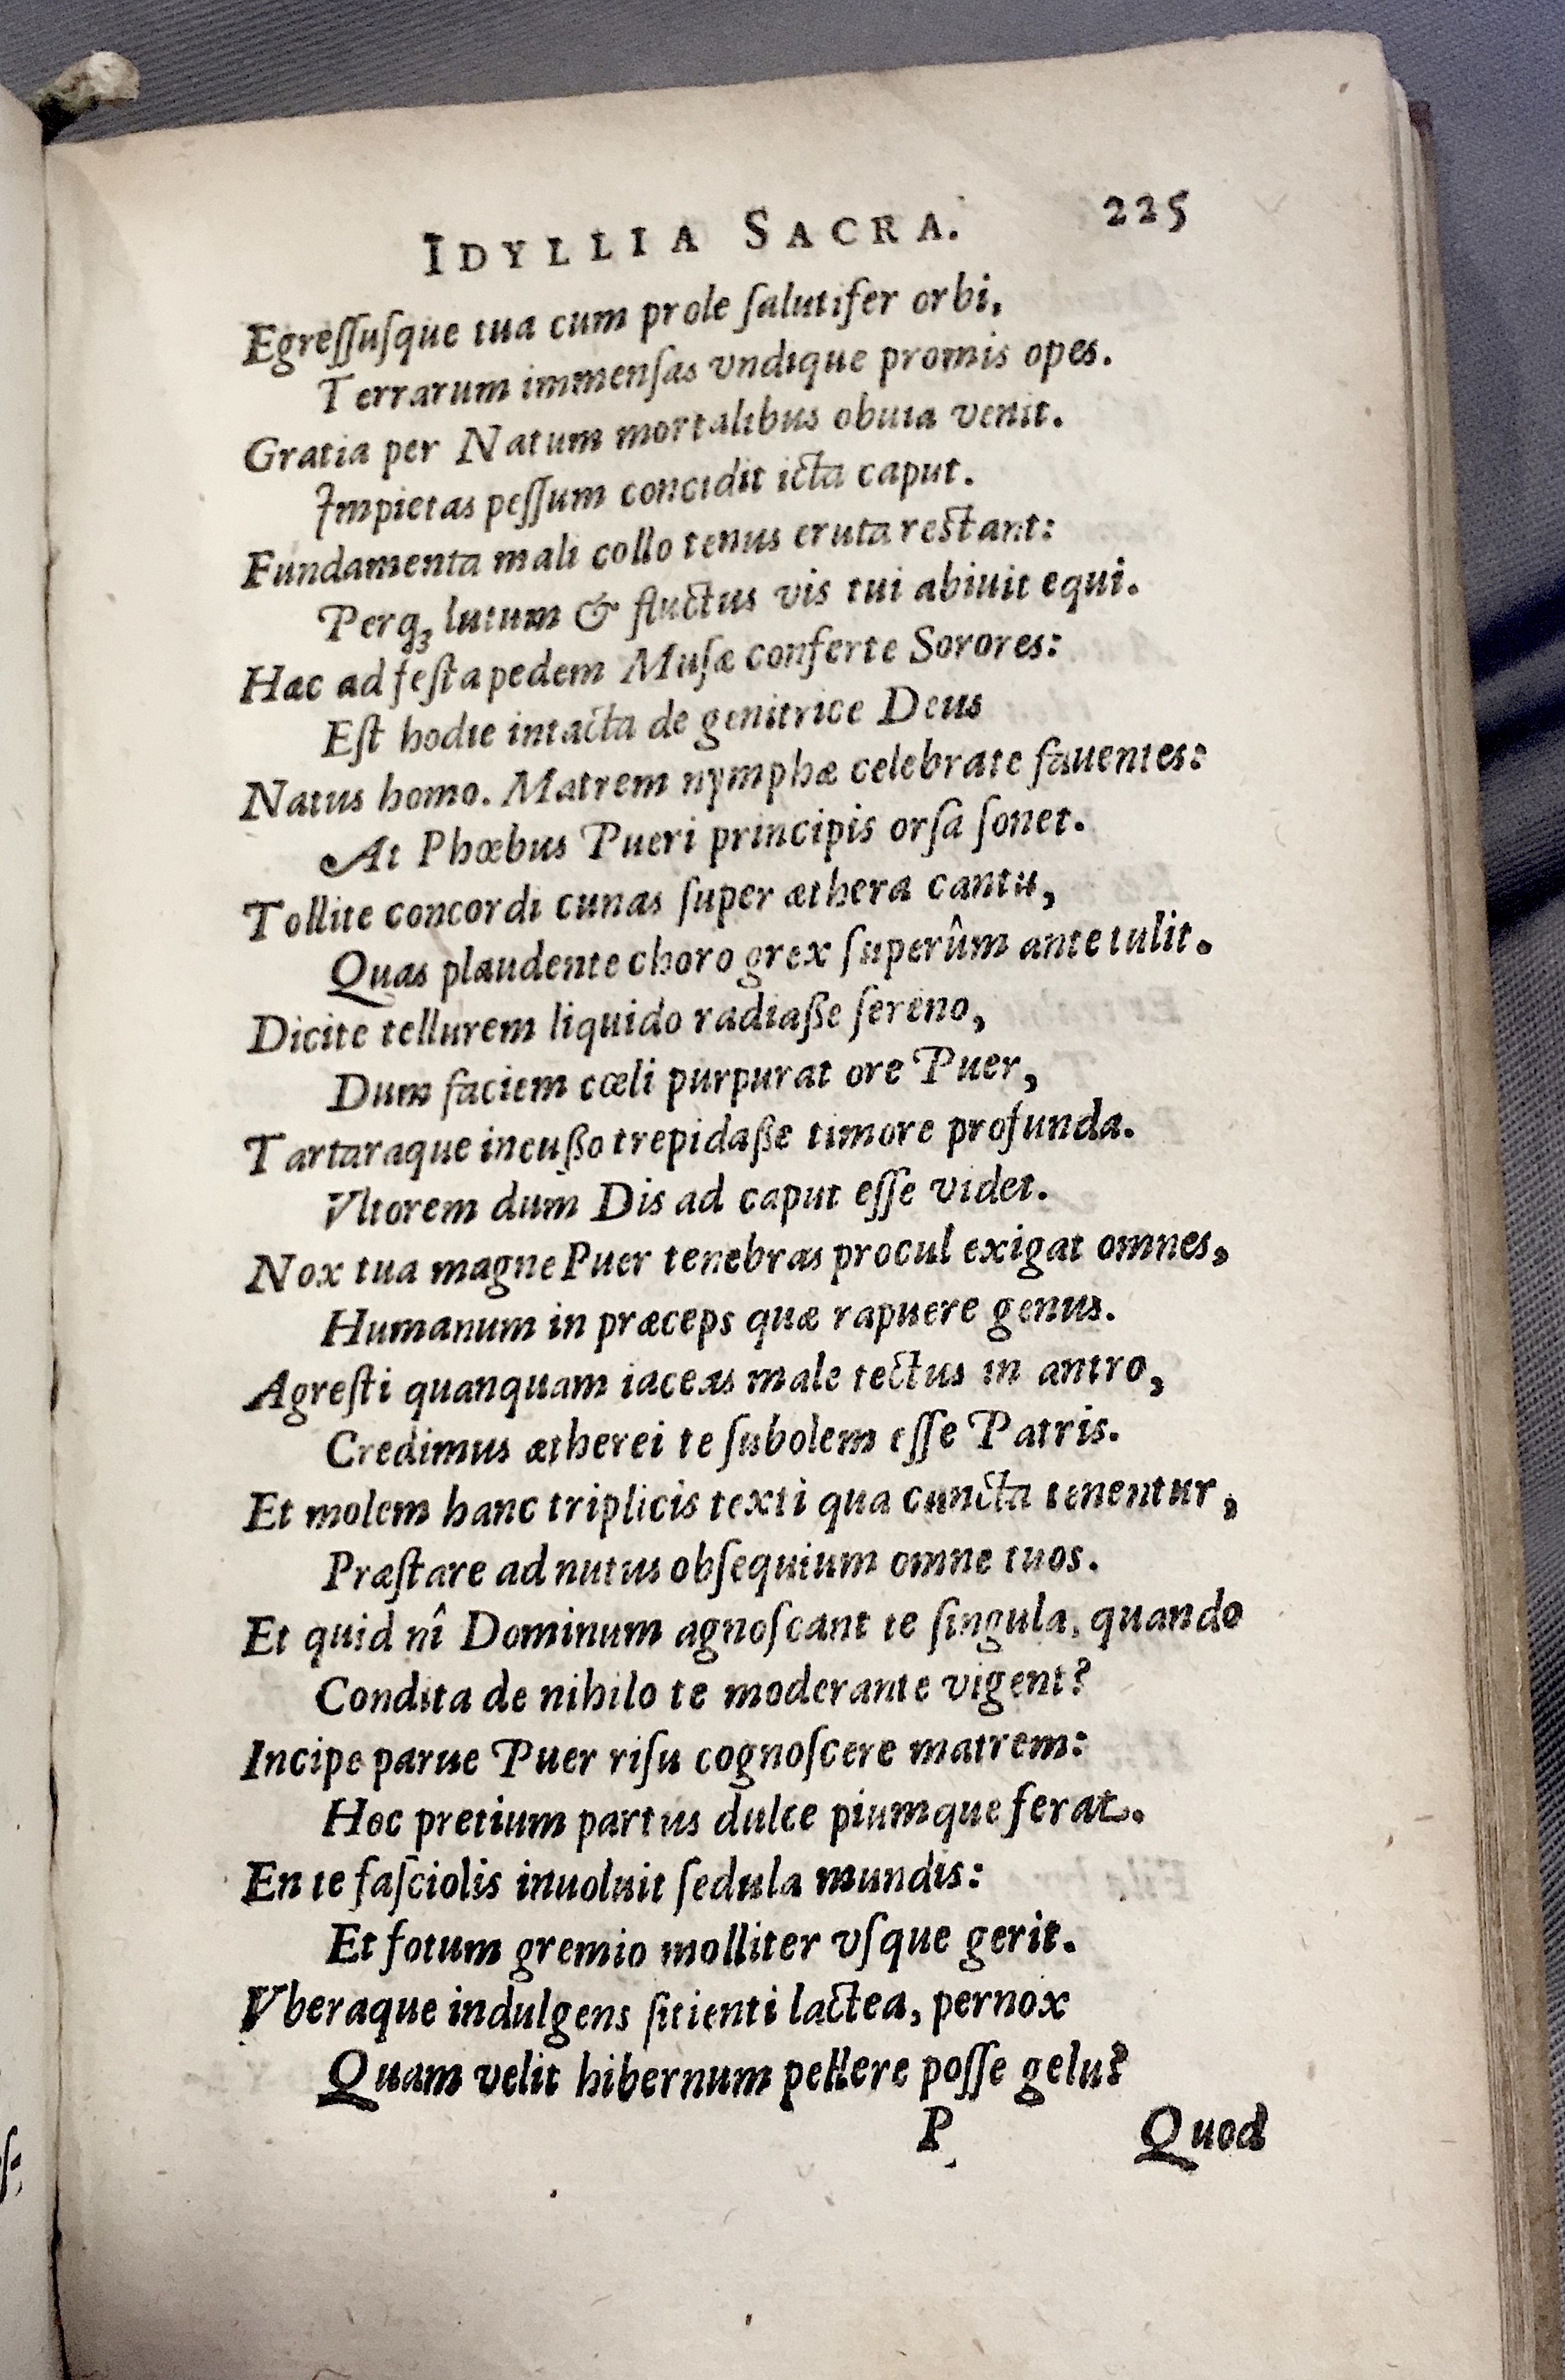 IDYLLIA SACRA. 225
Egreſſuſque tua cum prole ſalutifer orbi,
Terrarum immenſas vndique promis opes.
Gratia per Natum mortalibus obuia venit.
Impietas peſſum concidit icta caput.
Fundamenta mali collo tenus eruta restant:
Perq; lutum & fluctus vis tui abiuit equi.
Hac ad feſta pedem Muſæ conferte Sorores:
Eſt hodie intacta de genitrice Deus
Natus homo. Matrem nymphæ celebrate fauentes:
At Phœbus Pueri principis orſa ſonet.
Tollite concordi cunas ſuper æthera cantu,
Quas plaudente choro grex ſuperûm ante tulit.
Dicite tellurem liquido radiaße ſereno,
Dum faciem cœli purpurat ore Puer,
Tartaraque incußo trepidaße timore profunda.
Vltorem dum Dis ad caput eſſe videt.
Nox tua magne Puer tenebras procul exigat omnes,
Humanum in præceps quæ rapuere genus.
Agreſti quanquam iaceas male tectus in antro,
Credimus ætherei te ſubolem eſſe Patris.
Et molem hanc triplicis texti qua cuncta tenentur,
Præſtare ad nutus obſequium omne tuos.
Et quid nî Dominum agnoſcant te ſingula, quando
Condita de nihilo te moderante vigent?
Incipe parue Puer riſu cognoſcere matrem:
Hoc pretium partus dulce piumque ferat.
En te faſciolis inuoluit ſedula mundis:
Et fotum gremio molliter vſque gerit.
Vberaque indulgens ſitienti lactea, pernox
Quam velit hibernum pellere poſſe gelu?
P Quod